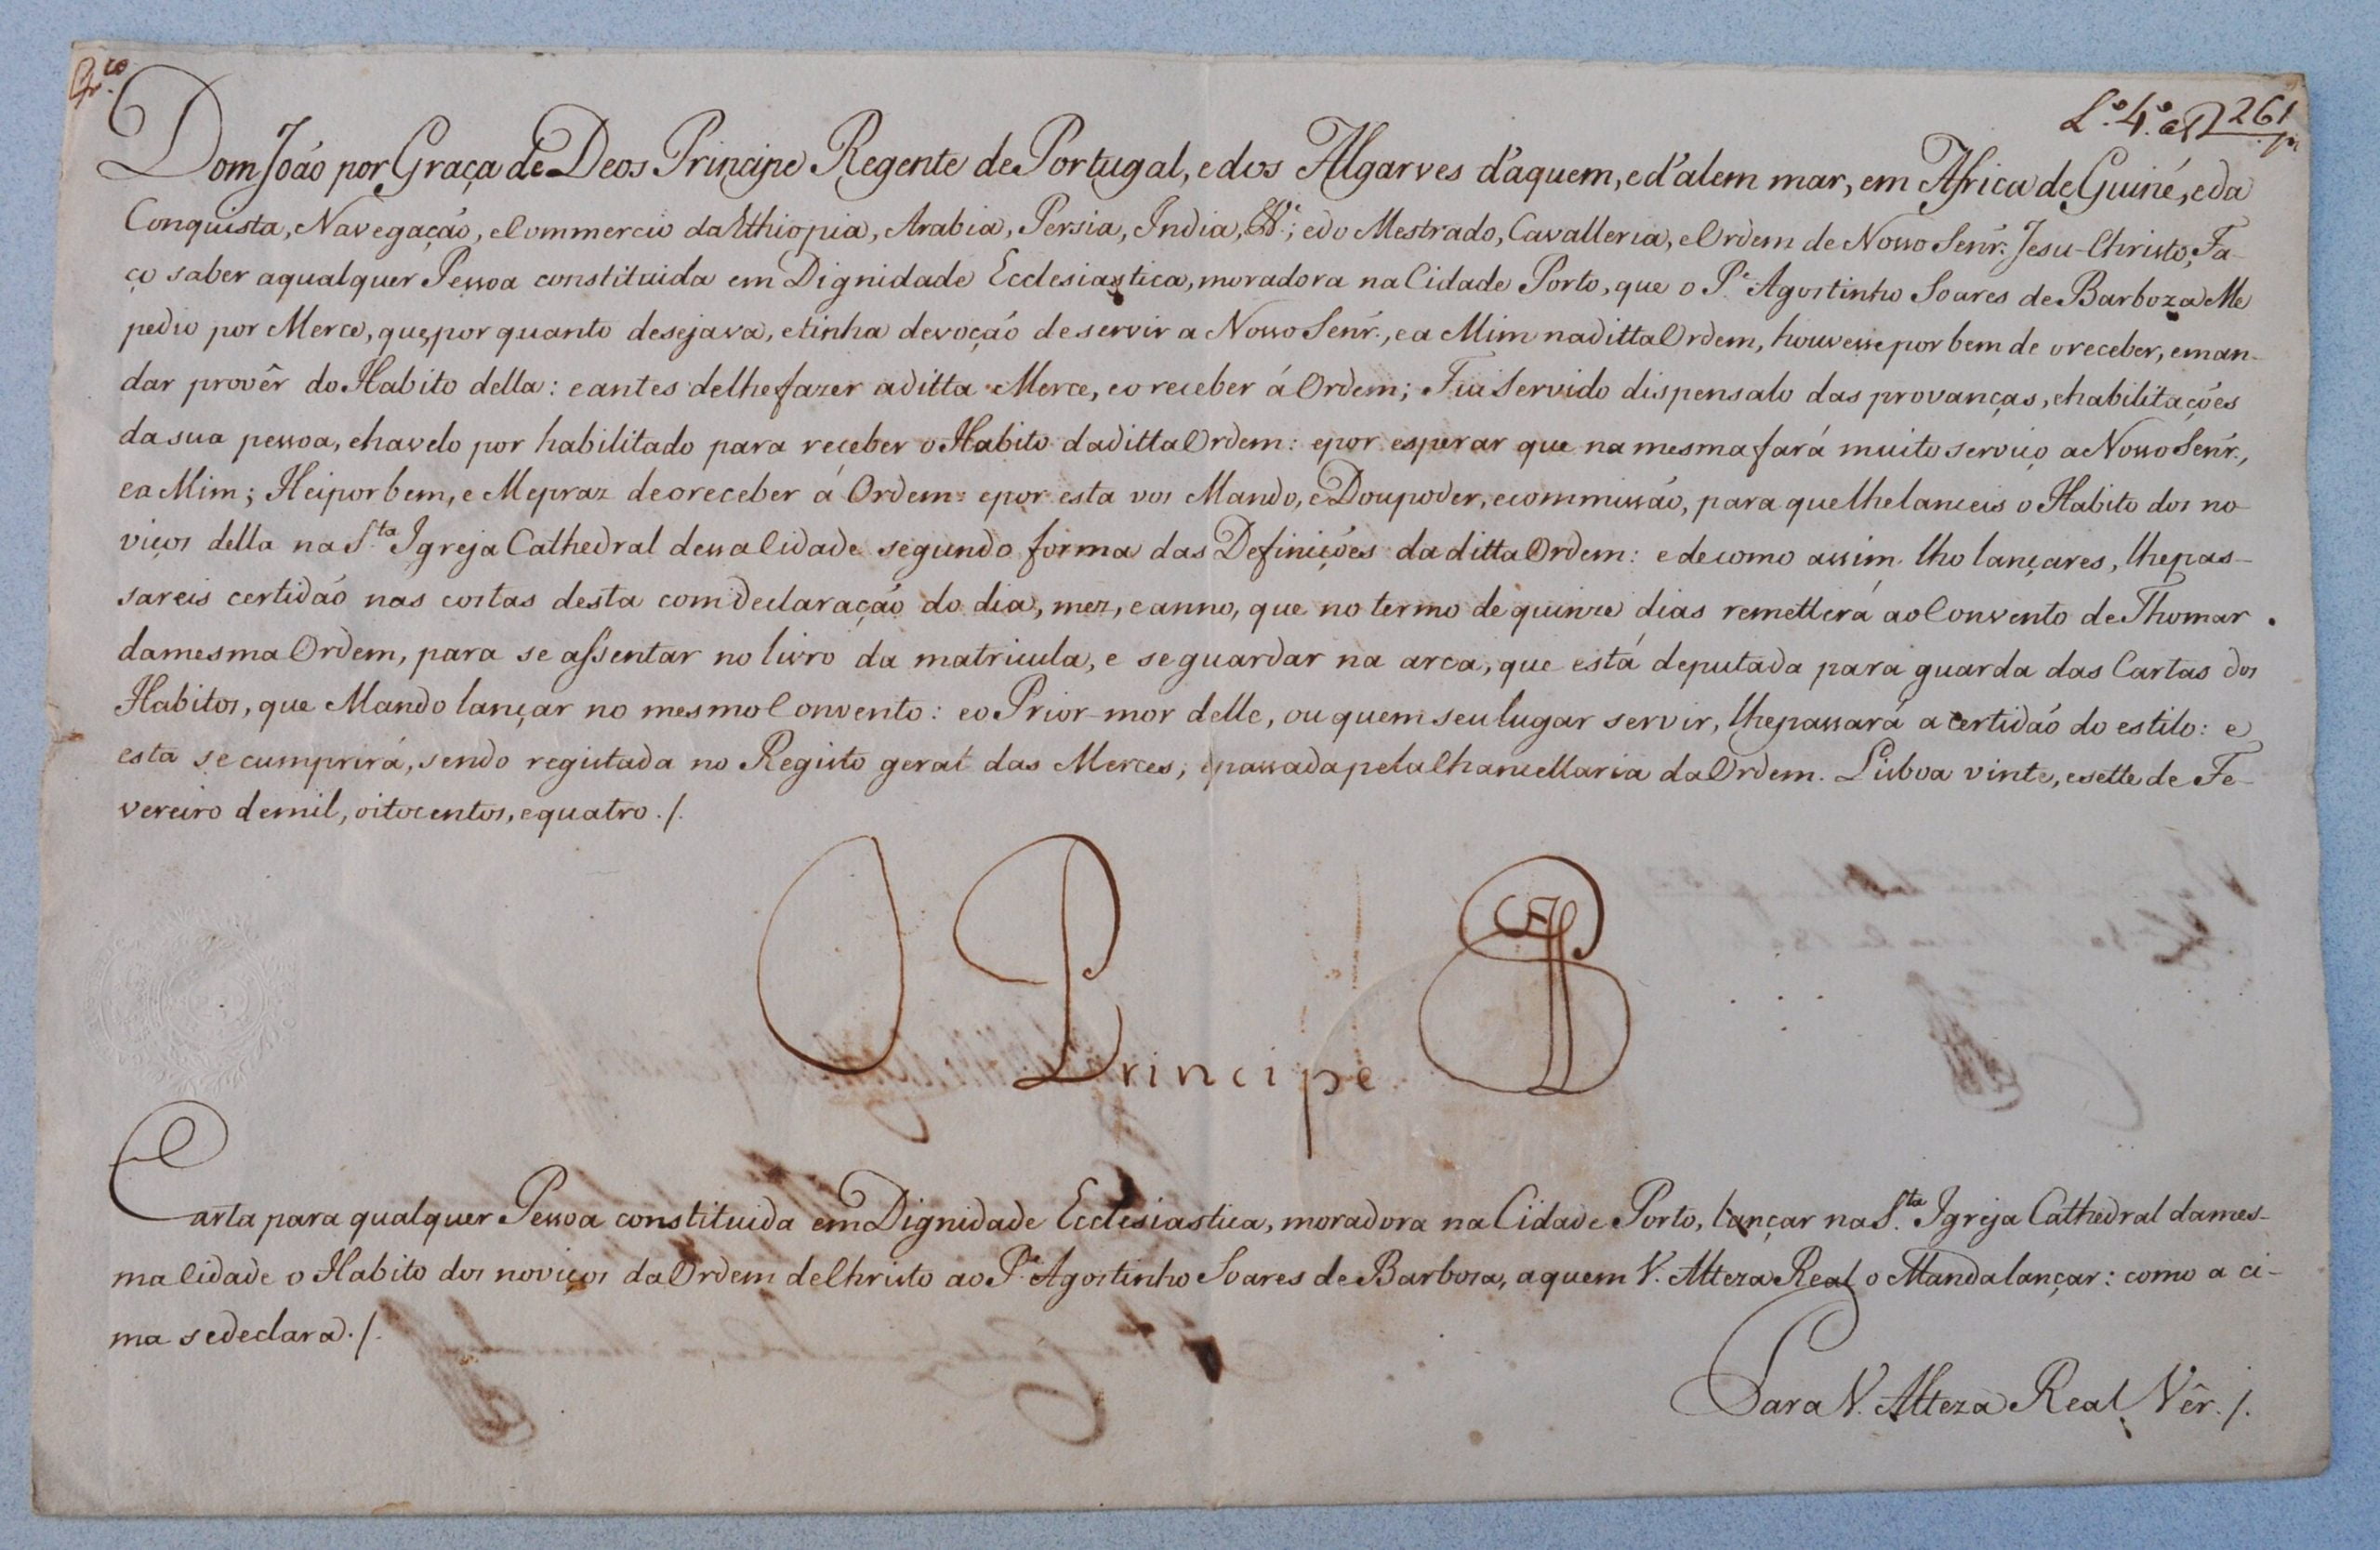 L.º 4.º 261
Dom João por Graça de Deos Principe Regente de Portugal, e dos Algarves d'aquem, e d'alem mar, em Africa de Guiné, e da
Conquista, Navegação, e Commercio da Ethiopia, Arabia, Persia, India, &.ª; e do Mestrado, Cavalleria, e Ordem de Nosso Senr. Jesu-Christo, Fa-
ço saber a qualquer Pessoa constituida em Dignidade Ecclesiastica, moradora na Cidade Porto, que o P.e Agostinho Soares de Barboza Me
pedio por Merce, que, por quanto desejava, e tinha devoção de servir a Nosso Senr., e a Mim na ditta Ordem, houvesse por bem de o receber, e man-
dar provêr do Habito della: e antes de lhe fazer a ditta Merce, e o receber á Ordem; Fui Servido dispensalo das provanças, e habilitações
da sua pessoa, e havelo por habilitado para receber o Habito da ditta Ordem: e por esperar que na mesma fará muito serviço a Nosso Senr.,
e a Mim; Hei por bem, e Me praz de o receber á Ordem: e por esta vos Mando, e Dou poder, e commissão, para que lhe lanceis o Habito dos no-
viços della na S.ta Igreja Cathedral dessa Cidade segundo forma das Definições da ditta Ordem: e de como assim lho lançares, lhe pas-
sareis certidão nas costas desta com declaração do dia, mez, e anno, que no termo de quinze dias remetterá ao Convento de Thomar
da mesma Ordem, para se assentar no livro da matricula, e se guardar na arca, que está deputada para guarda das Cartas dos
Habitos, que Mando lançar no mesmo Convento: e o Prior-mor delle, ou quem seu lugar servir, lhe passará a certidão do estilo: e
esta se cumprirá, sendo registada no Registo geral das Merces, e passada pela Chancellaria da Ordem. Lisboa vinte, e sette de Fe-
vereiro de mil, oitocentos, e quatro./.
O Principe
Carta para qualquer Pessoa constituida em Dignidade Ecclesiastica, moradora na Cidade Porto, lançar na S.ta Igreja Cathedral da mes-
ma Cidade o Habito dos noviços da Ordem de Christo ao P.e Agostinho Soares de Barbosa, a quem V. Alteza Real o Manda lançar: como a ci-
ma se declara./.
Para V. Alteza Real Vêr./.